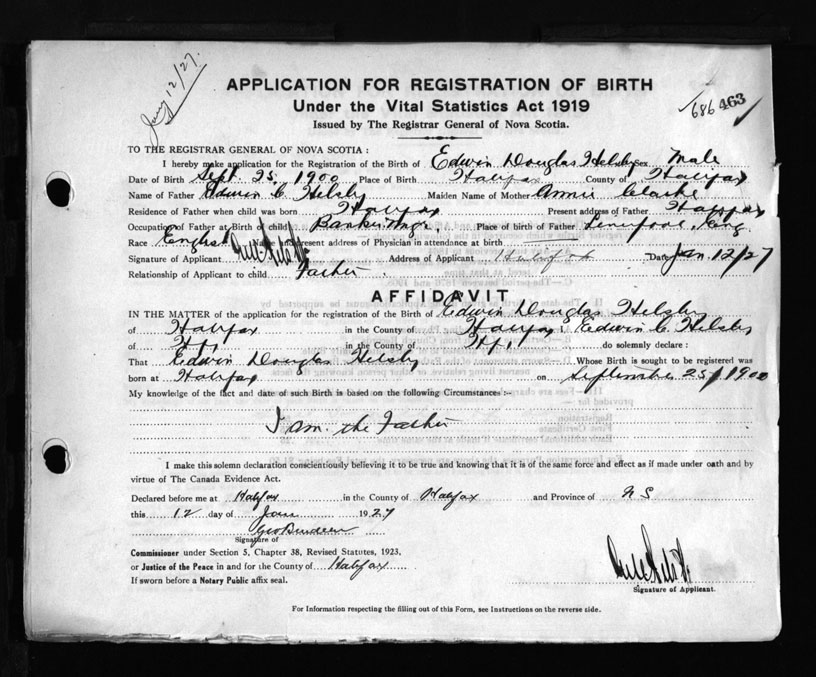 Jany 12/27.
APPLICATION FOR REGISTRATION OF BIRTH
Under the Vital Statistics Act 1919
686 463
Issued by The Registrar General of Nova Scotia.
TO THE REGISTRAR GENERAL OF NOVA SCOTIA :
I hereby make application for the Registration of the Birth of Edwin Douglas Helsby Sex Male
Date of Birth Sept. 25, 1900 Place of Birth Halifax County of Halifax
Name of Father Edwin C Helsby Maiden Name of Mother Annie Clarke
Residence of Father when child was born Halifax Present address of Father Halifax
Occupation of Father at Birth of child Bank Mngr. Place of birth of Father Liverpool, Eng
Race English Name and present address of Physician in attendance at birth
Signature of Applicant Address of Applicant Halifax Date Jan. 12/27
Relationship of Applicant to child Father.
AFFIDAVIT
IN THE MATTER of the application for the registration of the Birth of Edwin Douglas Helsby
of Halifax in the County of Halifax I, Edwin C. Helsby
of Hfx. in the County of Hfx. do solemnly declare :
That Edwin Douglas Helsby Whose Birth is sought to be registered was
born at Halifax on September 25, 1900
My knowledge of the fact and date of such Birth is based on the following Circumstances :-
I am the Father
I make this solemn declaration conscientiously believing it to be true and knowing that it is of the same force and effect as if made under oath and by
virtue of The Canada Evidence Act.
Declared before me at Halifax in the County of Halifax and Province of N S
this 12 day of Jan 1927
Signature of
Commissioner under Section 5, Chapter 38, Revised Statutes, 1923.
or Justice of the Peace in and for the County of Halifax
If sworn before a Notary Public affix seal.
Signature of Applicant.
For Information respecting the filling out of this Form, see Instructions on the reverse side.